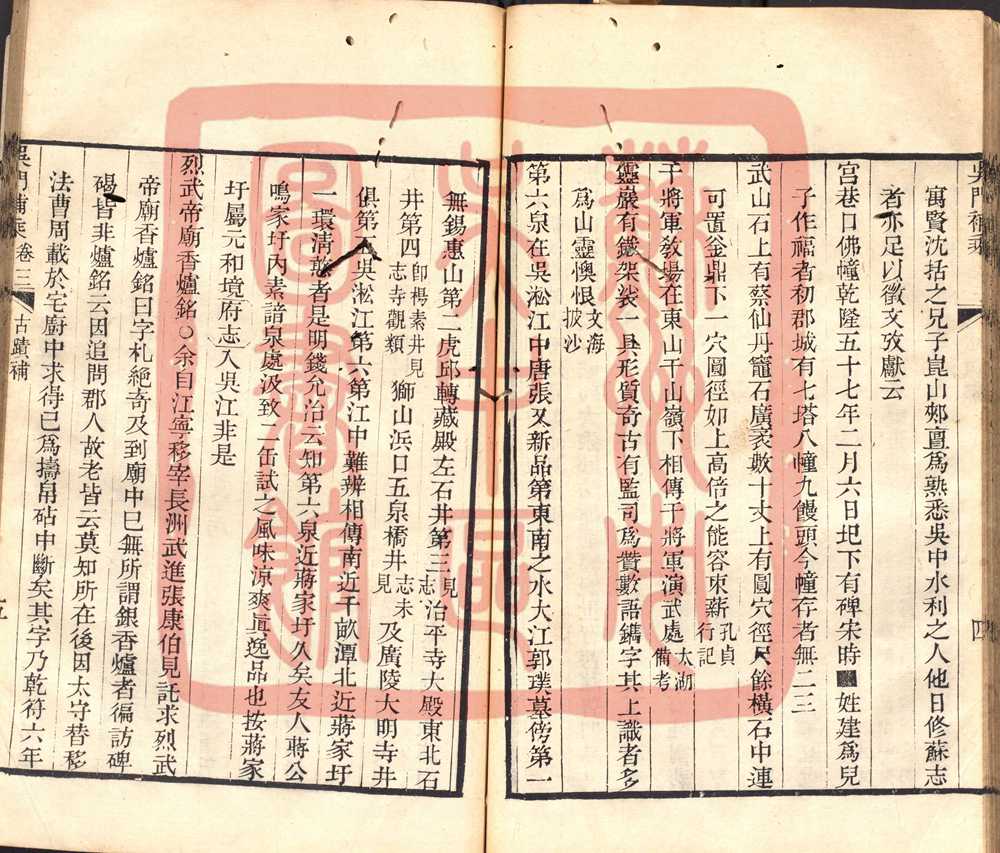 吳門補乘
四
寓賢沈括之兄子崑山郟亶爲熟悉吳中水利之人他日修蘇志
者亦足以徵文攷獻云
宮巷口佛幢乾隆五十七年二月六日圯下有碑宋時■姓建爲兒
子作福者初郡城有七塔八幢九饅頭今幢存者無二三
武山石上有蔡仙丹竈石廣袤數十丈上有圓穴徑尺餘橫石中連
可置釜鼎下一穴圓徑如上高倍之能容束薪孔貞行記
干將軍教場在東山干山嶺下相傳干將軍演武處太湖備考
靈巖有鐵袈裟一具形質奇古有監司爲贊數語鐫字其上識者多
爲山靈懊恨文海披沙
第六泉在吳淞江中唐張又新品第東南之水大江郭璞墓傍第一
無錫惠山第二虎邱轉藏殿左石井第三見志治平寺大殿東北石
井第四卽楊素井見志寺觀類獅山浜口五泉橋井志未見及廣陵大明寺井
俱第五吳淞江第六第江中難辨相傳南近千畝潭北近蔣家圩
一環清憨者是明錢允治云知第六泉近蔣家圩久矣友人蔣公
鳴家圩內素諳泉處汲致二缶試之風味凉爽眞逸品也按蔣家
圩屬元和境府志入吳江非是
烈武帝廟香爐銘○余自江寧移宰長洲武進張康伯見託求烈武
帝廟香爐銘曰字札絶奇及到廟中巳無所謂銀香爐者徧訪碑
碣皆非爐銘云因追問郡人故老皆云莫知所在後因太守替移
法曹周載於宅廚中求得已爲擣帛砧中斷矣其字乃乾符六年
吳門補乘卷三
古蹟補
五